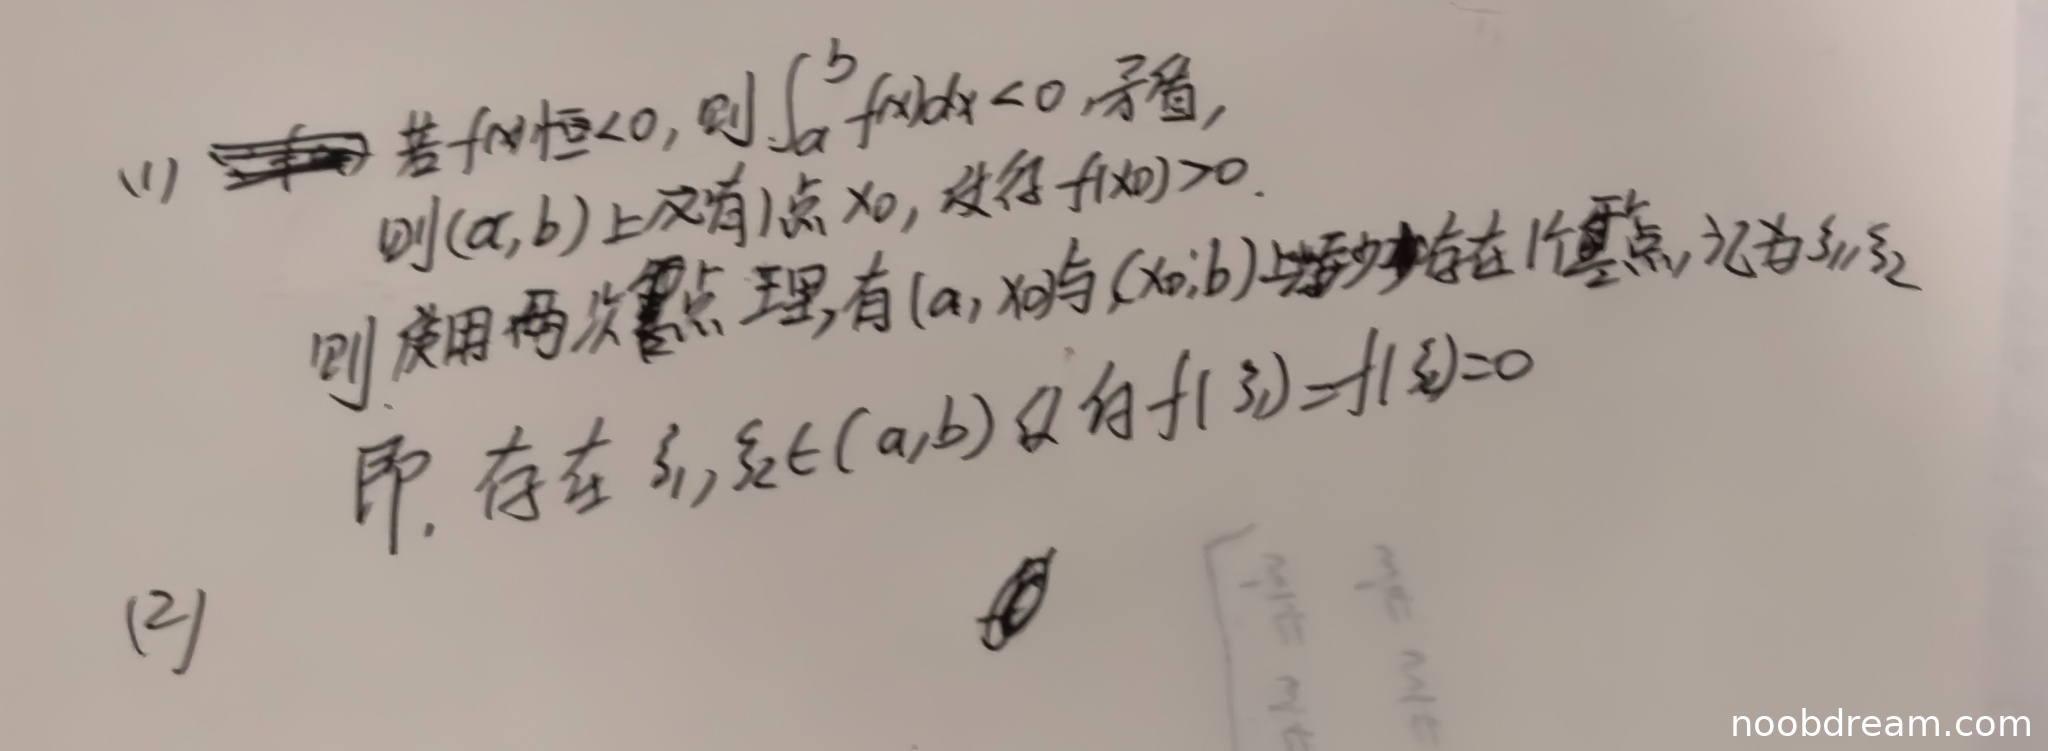 (1) 若f(x)恒<0, 则∫_a^b f(x)dx<0, 矛盾,
则(a,b)上必有1点x₀, 使得f(x₀)>0.
则. 使用两次零点定理, 有(a, x₀)与(x₀, b)上至少存在1个零点, 记为ξ₁, ξ₂
即. 存在ξ₁, ξ₂∈(a,b)使得f(ξ₁)=f(ξ₂)=0
(2)
noobdream.com